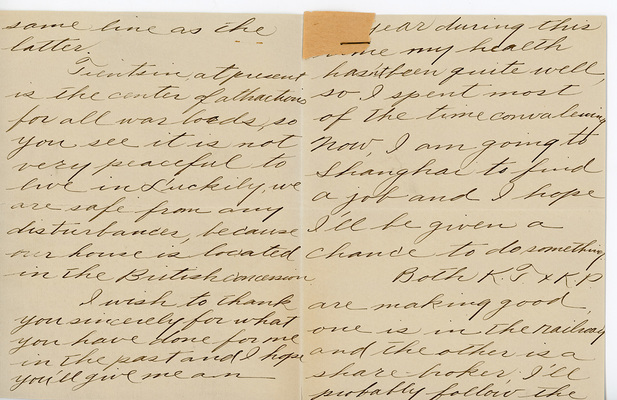 same line as the
latter.
Tientsin, at present
is the center of attractions
for all war loads, so
you see it is not
very peaceful to
live in. Luckily, we
are safe from any
disturbances, because
our house is located
in the British concession
I wish to thank
you sincerely for what
you have done for me
in the past and I hope
you'll give me an
year during this
time my health
hasn't been quite well,
so I spent most
of the time convalescing
Now, I am going to
Shanghai to find
a job and I hope
I'll be given a
chance to do something.
Both K.T. & K.P.
are making good,
one is in the railway
and the other is a
share broker, I'll
probably follow the